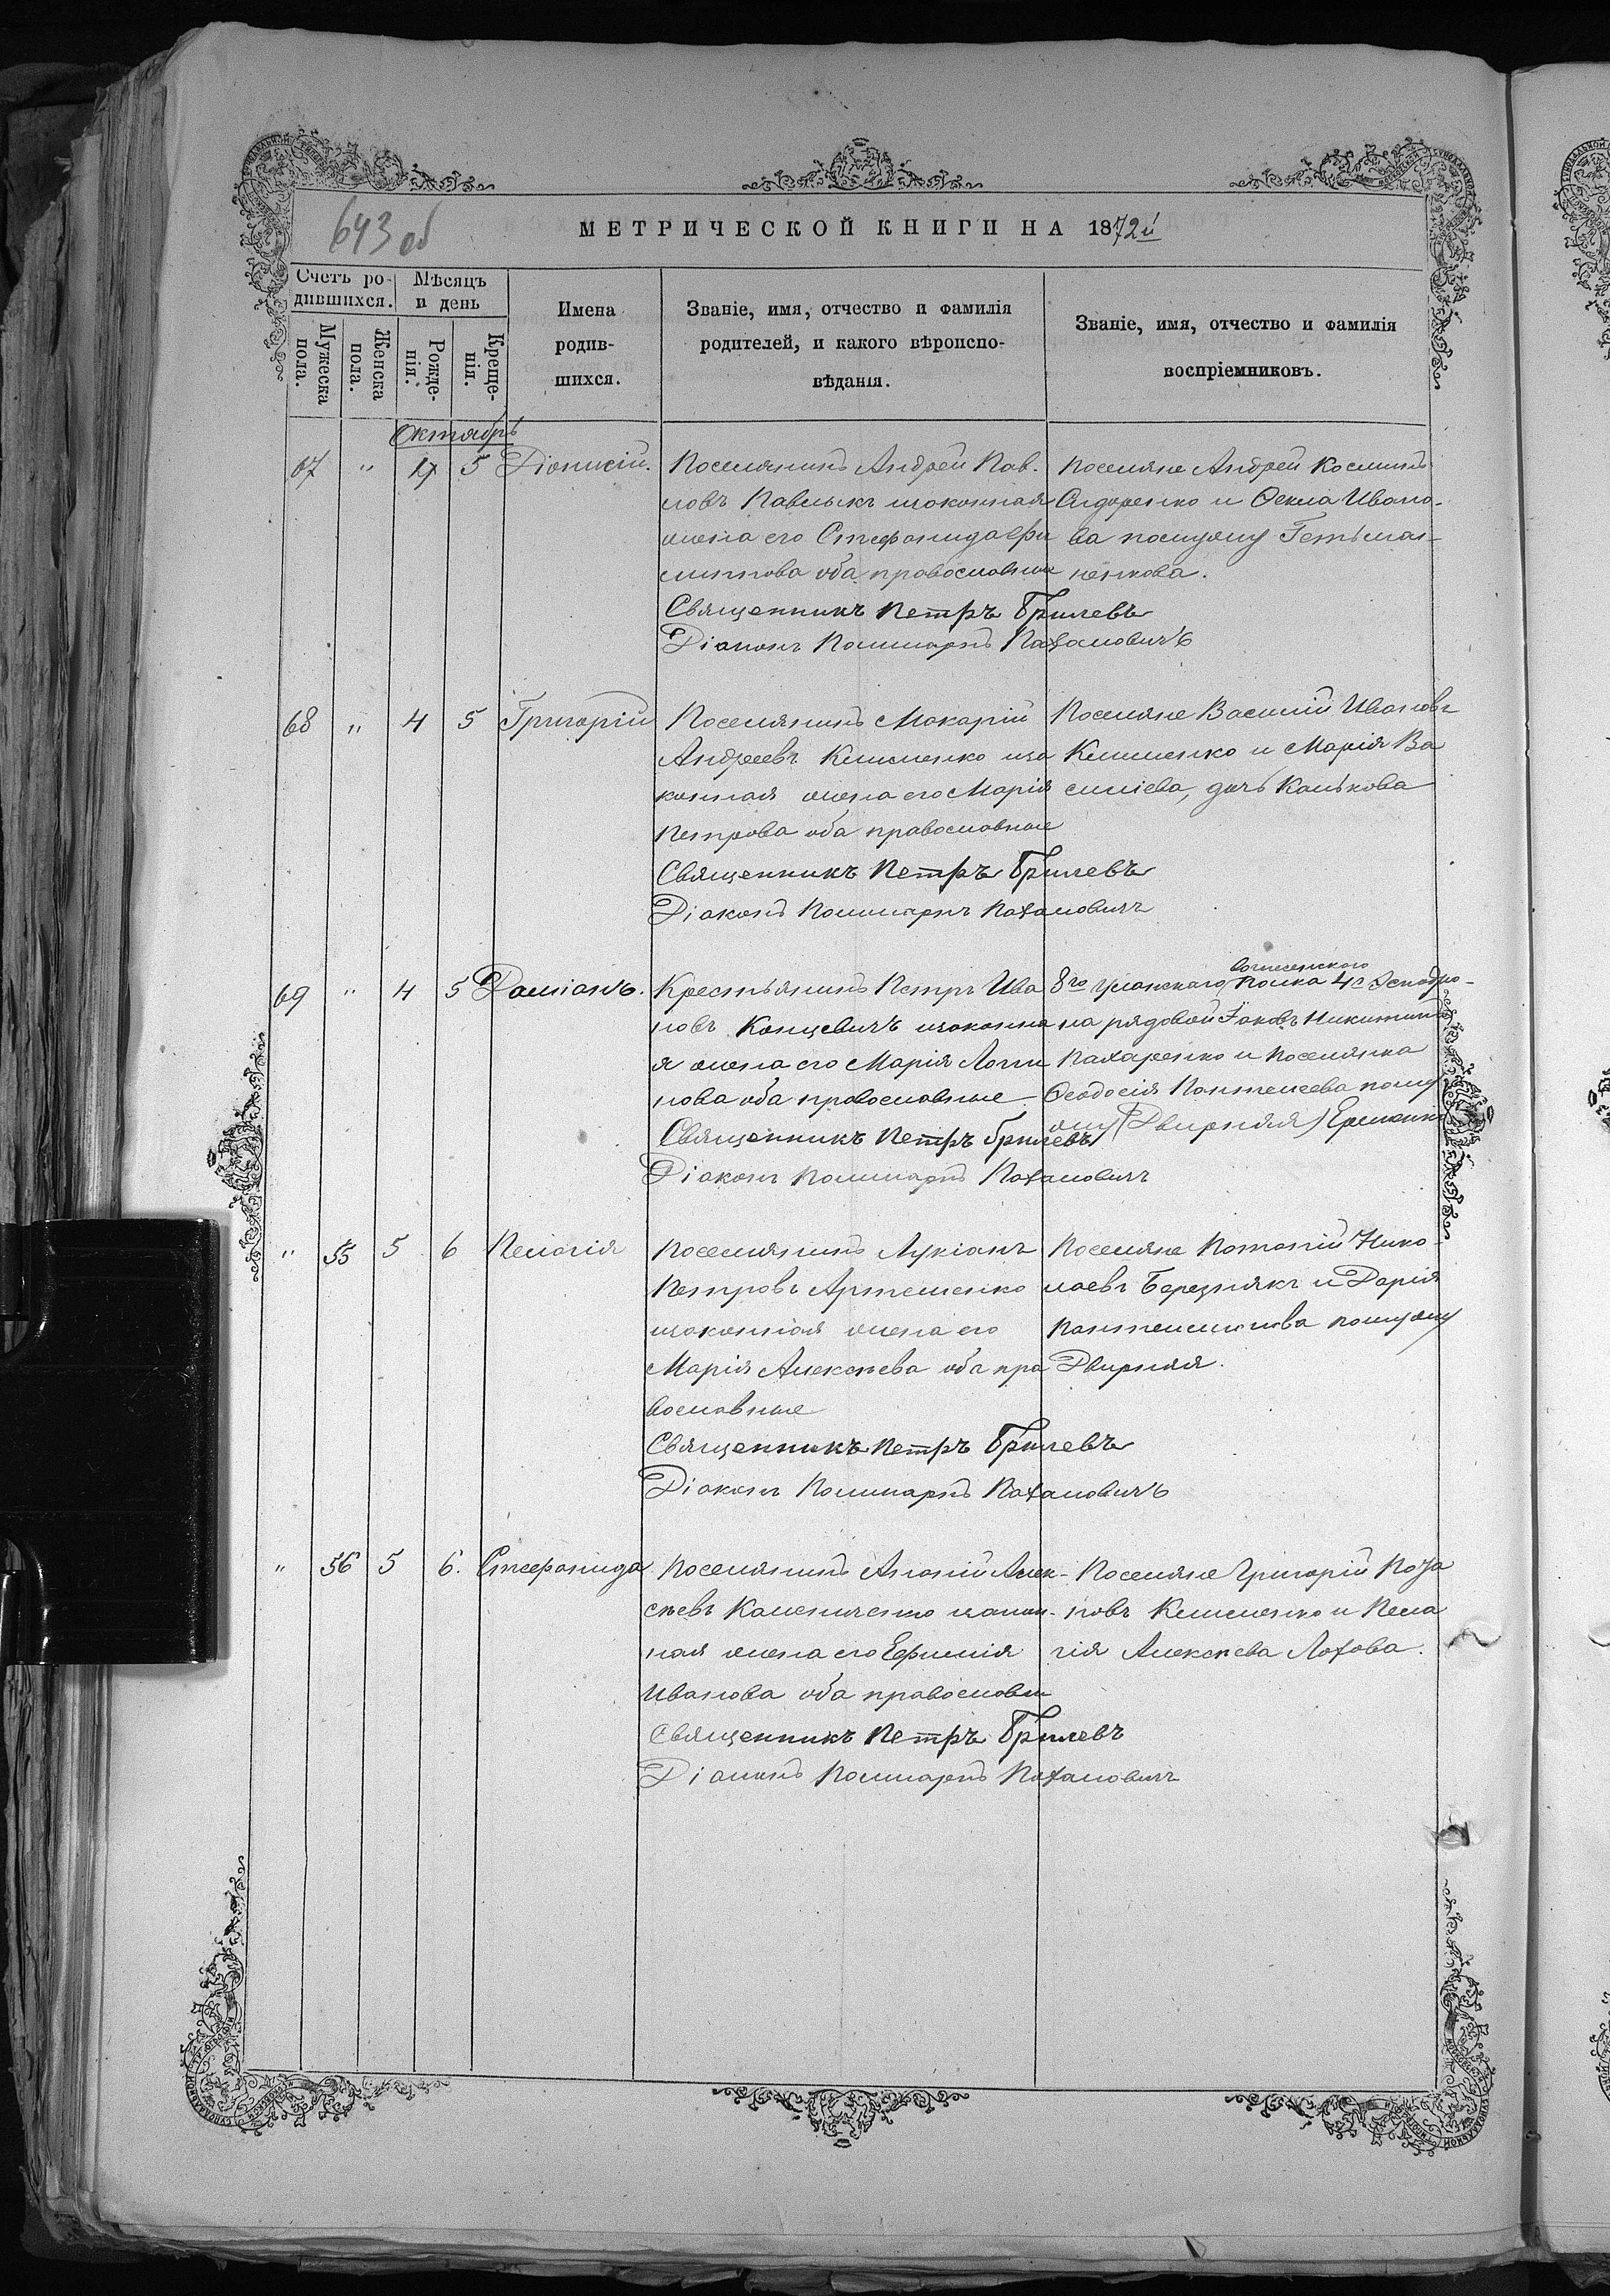 643 об
МЕТРИЧЕСКОЙ КНИГИ НА 1872й
Счетъ ро-
дившихся.
Мѣсяцъ
и день
Мужеска
пола.
Женска
пола.
Рожде-
нія.
Креще-
нія.
Имена
родив-
шихся.
Званіе, имя, отчество и фамилія
родителей, и какого вѣроиспо-
вѣданія.
Званіе, имя, отчество и фамилія
воспріемниковъ.
Октябрь
67 " 4 5 Діонисій.
Поселянинъ Андрей Пав-
ловъ Павлыкъ изаконная
жена его Стефанида
оба православные
Священникъ Петръ Брилевъ
Діаконъ Поликарпъ
Поселяне Андрей Косминъ
Сидоренко и Ѳекла Ивано-
ва помужу Гетьман-
ненкова.
68 " 4 5 Григорій
Поселянинъ Макарій
Андреевъ Клименко иза
конная жена его Марія
Петрова оба православные
Священникъ Петръ Брилевъ
Діаконъ Поликарпъ
Поселяне Василій Ивановъ
Клименко и Марія Ва
силіева, дочь Канькова
69 " 4 5 Даміанъ.
Крестьянинъ Петръ Ива
новъ Концевичъ изаконна
я жена его Марія Логи
нова оба православные
Священникъ Петръ Брилевъ
Діаконъ Поликарпъ
вознесенского
8го уланскаго полка 4го Эскадро-
на рядовой Іаковъ Никитинъ
Пахаренко и Поселянка
Ѳеодосія Пантелеева пому
жу (Двирняя) Ерменко
" 55 5 6 Пелагія
Поселянинъ Лукіанъ
Петровъ Артеменко
изаконная жена его
Марія Алексѣева оба пра
вославные
Священникъ Петръ Брилевъ
Діаконъ Поликарпъ
Поселяне Потапій Нико-
лаевъ Березнякъ и Дарія
Пантелимонова помужу
Двирняя.
" 56 5 6. Стефанида
Поселянинъ Ананій Алек-
сѣевъ Каменченко изакон-
ная жена его Евфимія
Иванова оба православн
Священникъ Петръ Брилевъ
Діаконъ Поликарпъ
Поселяне Григорій Коза
ковъ Клименко и Пела
гія Алексѣева Лохова.